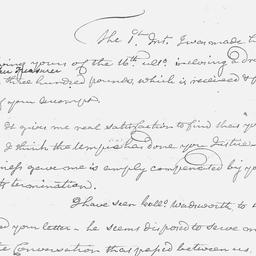 The 9th Inst. I was made h
ing yours of the 16th ulto. incloving a dr
Treasurer
three hundred pounds, which is received & p
of your Accompt.
It gives me real satisfaction to find that "yo
I think the umpire has done you Justice
ness gave me is amply compensated by yo
termination.
I have seen Collo. Wadsworth to
ed your letter — he seems disposed to serve m
the Conversation that passed between us.